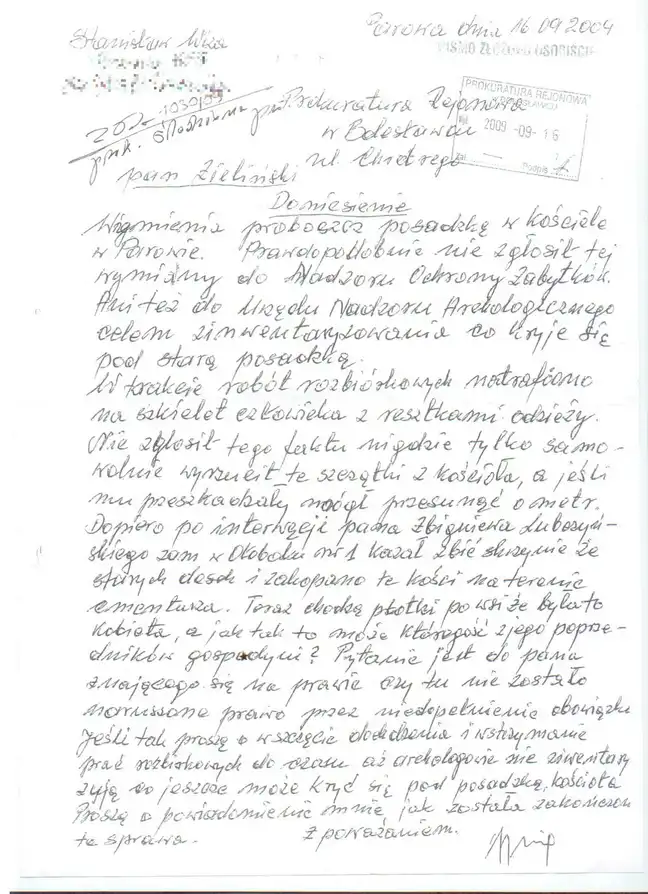 Stanisław Wiza
Parowa dnia 16 09 2004
PISMO ZŁOŻONO OSOBIŚCIE
PROKURATURA REJONOWA
2009 -09- 16
Podpis
Prokuratura Rejonowa
w Bolesławcu
pan Zieliński
Doniesienie
Wymienia proboszcz posadzkę w kościele
w Parowie. Prawdopodobnie nie zgłosił tej
wymiany do Nadzoru Ochrony Zabytków.
Ani też do Urzędu Nadzoru Arehologicznego
celem zinwentaryzowania co kryje się
pod starą posadzką.
W trakcie robót rozbiórkowych natrafiono
na szkielet człowieka z resztkami odzieży.
Nie zgłosił tego faktu nigdzie tylko samo-
wolnie wyrzucił te szczątki z kościoła, a jeśli
mu przeszkadzały mógł przesunąć o metr.
Dopiero po interwęcji pana Zbigniewa
skiego zam w nr 1 kazał zbić skrzynie ze
starych desek i zakopano te kości na terenie
cmentarza. Teraz chodzą plotki po wsi że była to
kobieta, a jak tak to może któregoś z jego poprze-
dników gospodyni? Pytanie jest do pana
znającego się na prawie czy tu nie zostało
naruszone prawo przez niedopełnienie obowiązku
Jeśli tak proszę o wszczęcie dochodzenia i wstrzymanie
prac rozbiórkowych do czasu aż archologowie nie zinwentary
zują co jeszcze może kryć się pod posadzką kościoła
Proszę o powiadomienie mnie jak została zakończon
ta sprawa. Z poważaniem.